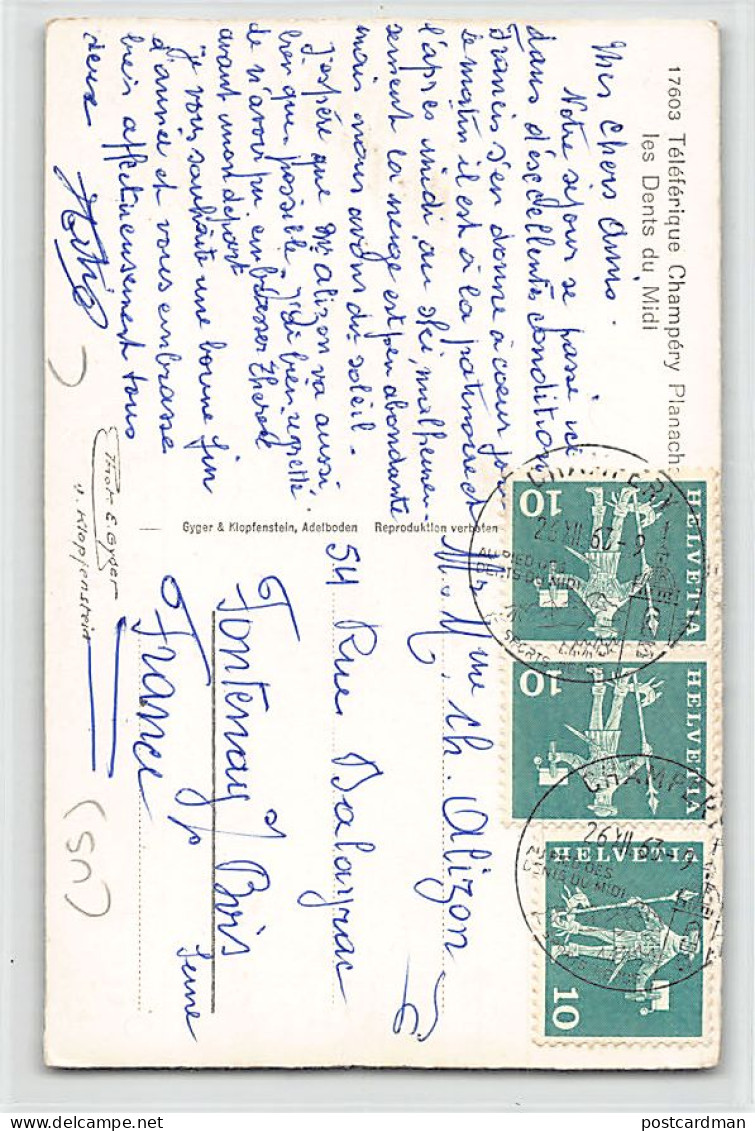 17603 Téléférique Champéry Planach
les Dents du Midi
Mes Chers Amis.
Notre séjour se passe ici
dans d'excellentes conditions
Francis s'en donne à cœur joie
le matin il est à la patinoire et
l'après midi au ski, malheureu-
sement la neige est peu abondante
mais nous avons du soleil -
J'espère que Mr Alizon va aussi
bien que possible, j'ai bien regretté
de n'avoir pu embrasser Thérèse
avant mon départ
Je vous souhaite une bonne fin
d'année et vous embrasse
bien affectueusement tous
deux
Phot. E. Gyger
u. Klopfenstein
Gyger & Klopfenstein, Adelboden Reproduktion verboten
Mr Mme Ch. Alizon
54 Rue Dalayrac
Fontenay s/ Bois
Seine
France
(SU)
HELVETIA
10
HELVETIA
10
HELVETIA
10
CHAMPERY
26 XII 63 - 9
AU PIED DES
DENTS DU MIDI
SPORTS
CHAMPERY
26 XII 63 - 9
AU PIED DES
DENTS DU MIDI
postcardman